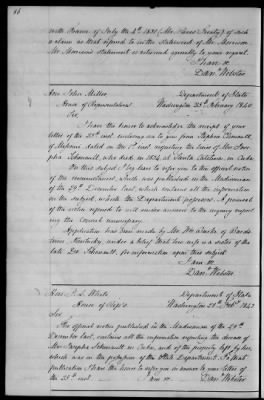 86
with France of July the 4th 1831 (Mr. Rives Treaty) of such
a claim as that referred to in the statement of Mr. Morrison
Mr. Morrison's statement is returned agreeably to your request.
I have &c
Danl. Webster
Hon. John Miller Department of State
House of Representatives Washington 25th February 1842
Sir,
I have the honor to acknowledge the receipt of your
letter of the 23d inst. enclosing one to you from
of Missouri dated on the 1st inst. regarding the heirs of Mr.
who died in 1834 at Santa Catalina in Cuba
On this subject I beg leave to refer you to the official notice
of the circumstances, which was published in the Madisonian
of the 29th December last, which contains all the information
on the subject, which the Department possesses. A renewal
of the notice referred to will make answer to the inquiry respecting
the Consul's
Application has been made by Mr. Wm. of
town Kentucky, under a belief that his wife is a sister of the
late Dr. for information upon this subject
I am &c
Danl. Webster
Hon. White Department of State
House of Rep's. Washington 28th Feby. 1842
Sir
The official notice published in the Madisonian of the 29th
December last, contains all the information regarding the decease of
Mr. Joseph in Cuba, and of the property left by him,
which was in the possession of the Department. To that
publication I have the honor to refer you in answer to your letter of
the 25th inst. I am &c
Danl. Webster